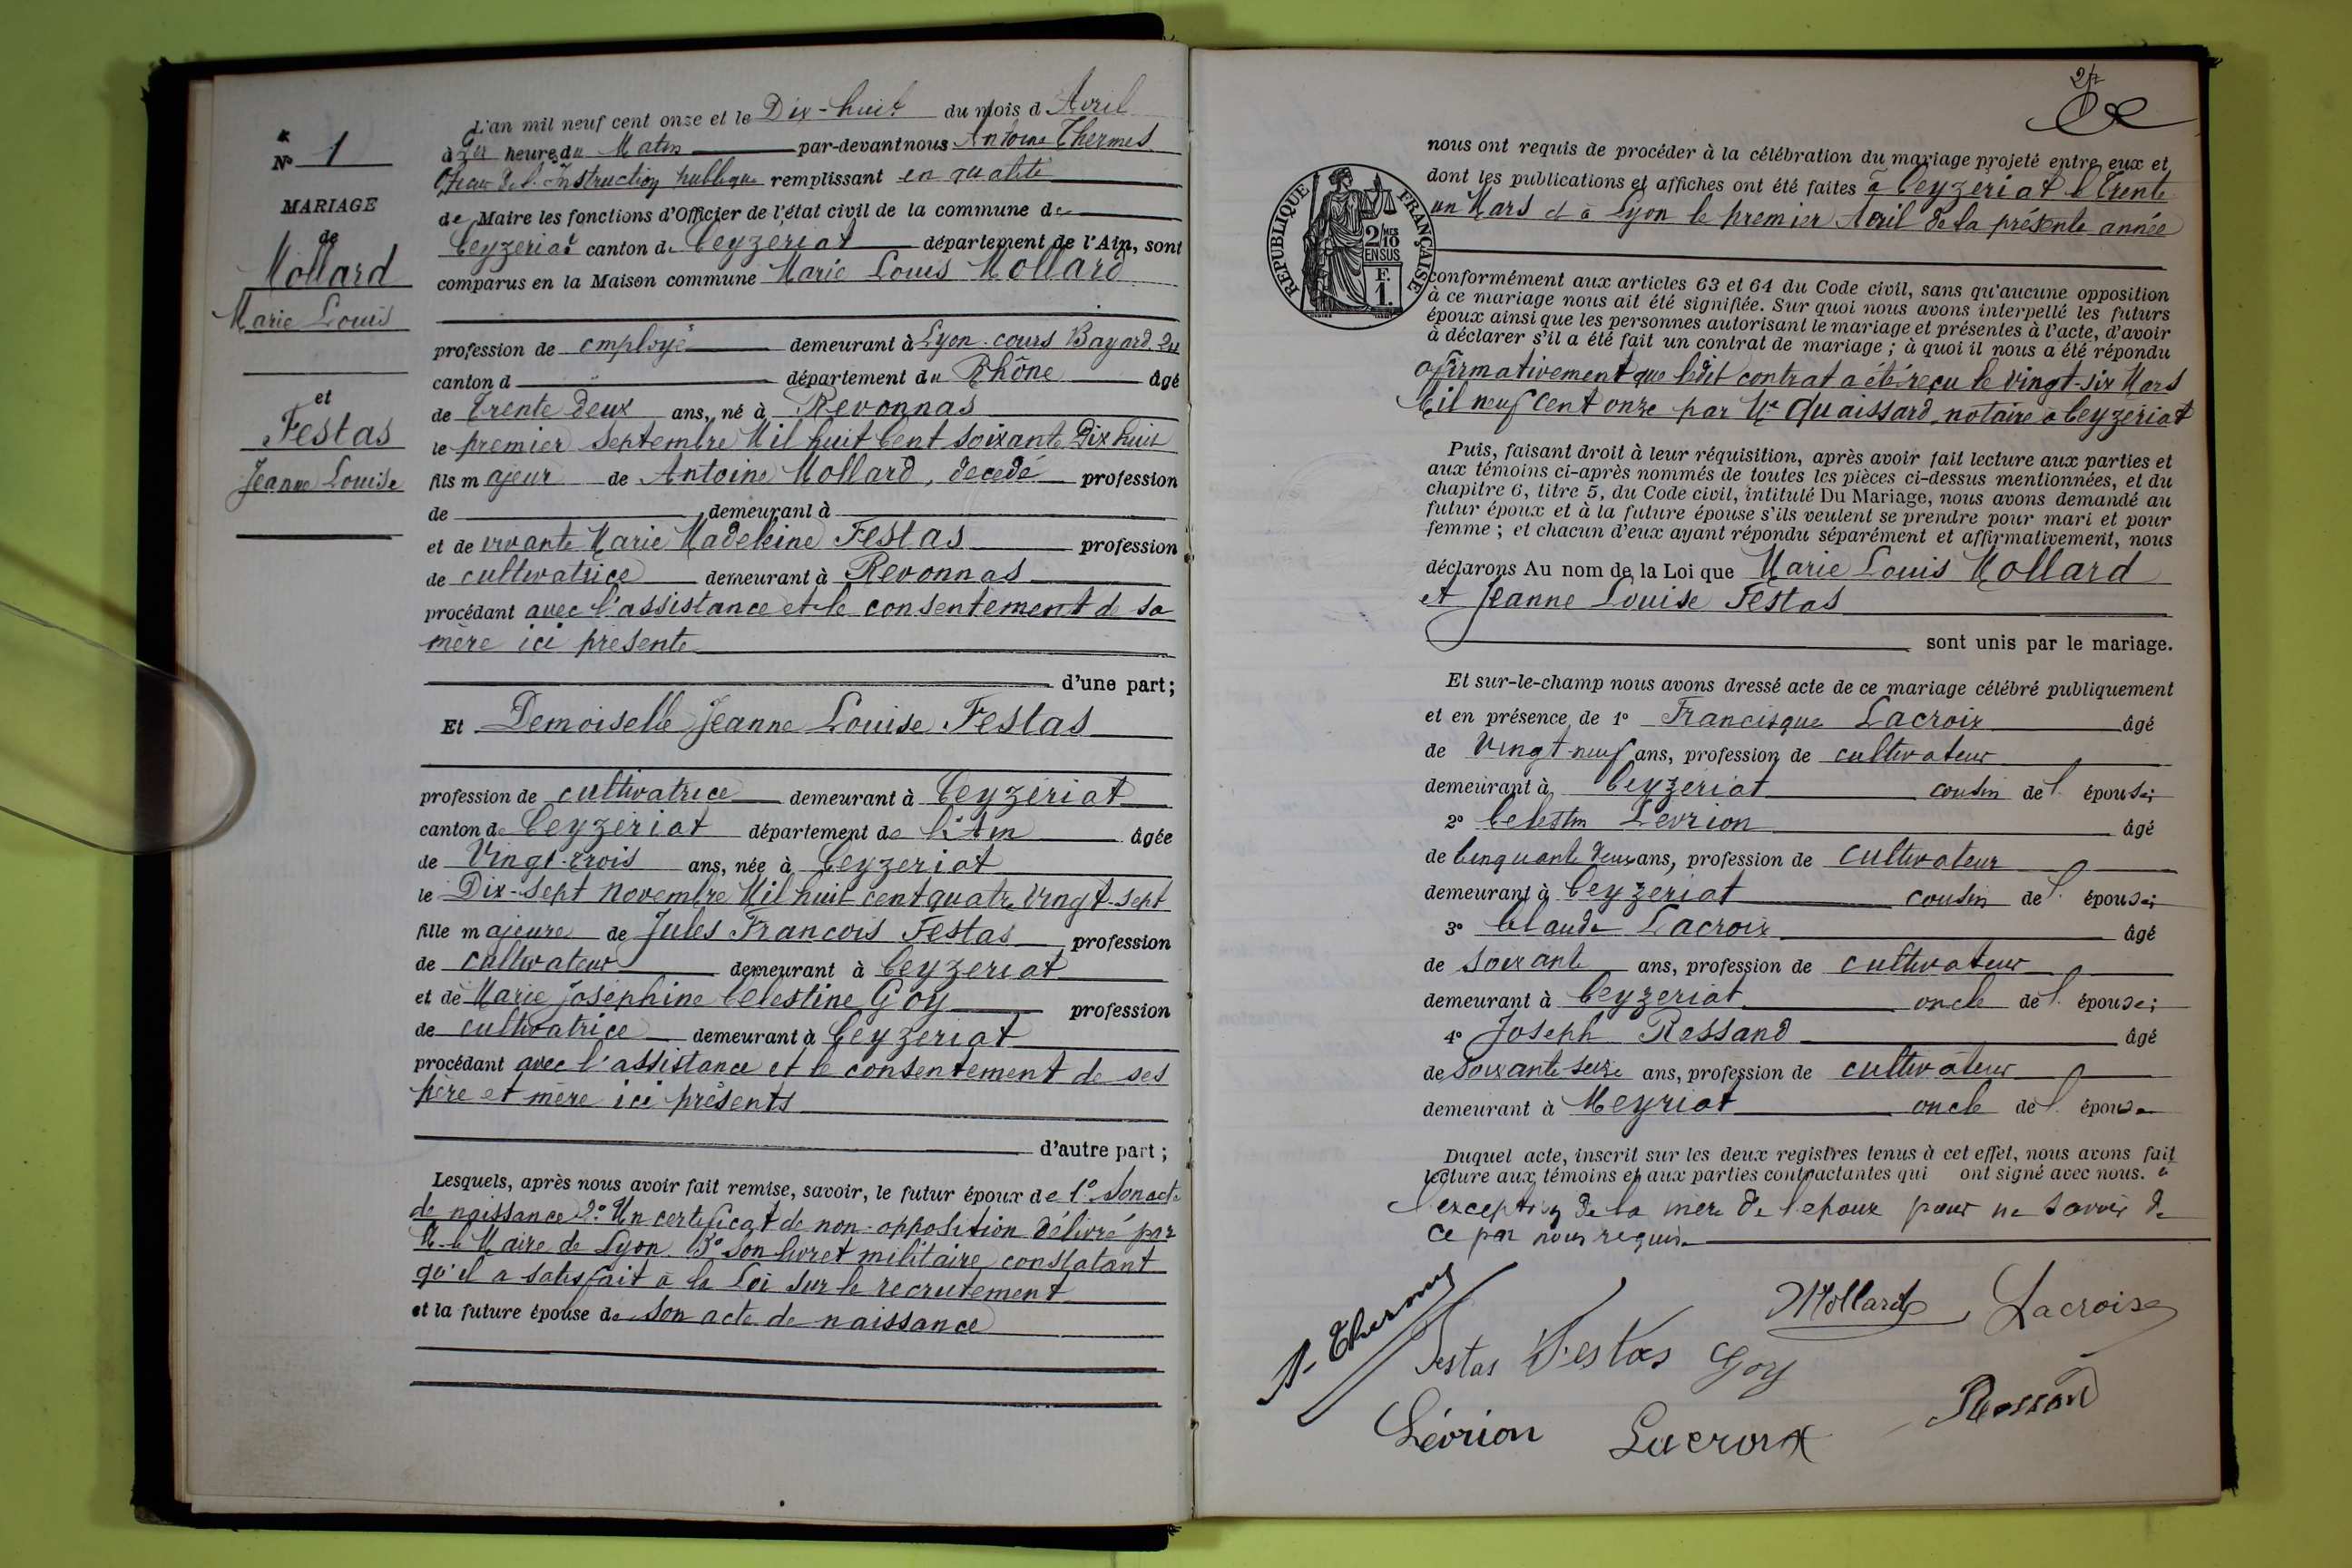 N° 1
MARIAGE
de
Mollard
Marie Louis
et
Festas
Jeanne Louise
L'an mil neuf cent onze et le Dix-huit du mois d Avril
à heure du Matin par-devant nous Antoine Thermes
de l'Instruction publique remplissant en qualité
de Maire les fonctions d'Officier de l'état civil de la commune de
Ceyzeriat canton de Ceyzériat département de l'Ain, sont
comparus en la Maison commune Marie Louis Mollard
profession de employé demeurant à Lyon cours Bayard
canton d département du Rhône âgé
de Trente deux ans, né à Revonnas
le premier septembre Mil huit Cent soixante Dix huit
fils majeur de Antoine Mollard, decedé profession
de demeurant à
et de vivante Marie Madeleine Festas profession
de cultivatrice demeurant à Revonnas
procédant avec l'assistance et le consentement de sa
mère ici présente
d'une part;
Et Demoiselle Jeanne Louise Festas
profession de cultivatrice demeurant à Ceyzériat
canton de Ceyzériat département de l'Ain âgée
de Vingt-trois ans, née à Ceyzeriat
le Dix-sept novembre Mil huit cent quatre Vingt-sept
fille majeure de Jules Francois Festas profession
de cultivateur demeurant à Ceyzeriat
et de Marie Joséphine Celestine Goy profession
de cultivatrice demeurant à Ceyzeriat
procédant avec l'assistance et le consentement de ses
père et mère ici présents
d'autre part;
Lesquels, après nous avoir fait remise, savoir, le futur époux de 1° Son acte
de naissance 2° Un certificat de non-opposition délivré par
M. le Maire de Lyon 3° Son livret militaire constatant
qu'il a satisfait à la Loi sur le recrutement
et la future épouse de son acte de naissance
2
nous ont requis de procéder à la célébration du mariage projeté entre eux et
dont les publications et affiches ont été faites à Ceyzériat le Trente
un Mars et à Lyon le premier Avril de la présente année
REPUBLIQUE FRANÇAISE
2/10 MES
EN SUS
F.
1.
conformément aux articles 63 et 64 du Code civil, sans qu'aucune opposition
à ce mariage nous ait été signifiée. Sur quoi nous avons interpellé les futurs
époux ainsi que les personnes autorisant le mariage et présentes à l'acte, d'avoir
à déclarer s'il a été fait un contrat de mariage; à quoi il nous a été répondu
affirmativement que ledit contrat a été reçu le vingt-six Mars
Mil neuf cent onze par Me Quaissard notaire à Ceyzeriat
Puis, faisant droit à leur réquisition, après avoir fait lecture aux parties et
aux témoins ci-après nommés de toutes les pièces ci-dessus mentionnées, et du
chapitre 6, titre 5, du Code civil, intitulé Du Mariage, nous avons demandé au
futur époux et à la future épouse s'ils veulent se prendre pour mari et pour
femme; et chacun d'eux ayant répondu séparément et affirmativement, nous
déclarons Au nom de la Loi que Marie Louis Mollard
et Jeanne Louise Festas
sont unis par le mariage.
Et sur-le-champ nous avons dressé acte de ce mariage célébré publiquement
et en présence de 1° Francisque Lacroix âgé
de Vingt-neuf ans, profession de cultivateur
demeurant à Ceyzeriat cousin de l' épouse;
2° Celestin Levrion âgé
de Cinquante deux ans, profession de cultivateur
demeurant à Ceyzeriat cousin de l' épouse;
3° Claude Lacroix âgé
de soixante ans, profession de cultivateur
demeurant à Ceyzeriat oncle de l' épouse;
4° Joseph Rossand âgé
de soixante seize ans, profession de cultivateur
demeurant à Meyriat oncle de l' épouse
Duquel acte, inscrit sur les deux registres tenus à cet effet, nous avons fait
lecture aux témoins et aux parties contractantes qui ont signé avec nous. à
l'exception de la mère de l'epoux pour ne savoir de
ce par nous requise
A. Thermes
Mollard Lacroix
Festas Festas Goy
Rossand
Lévrion Lacroix